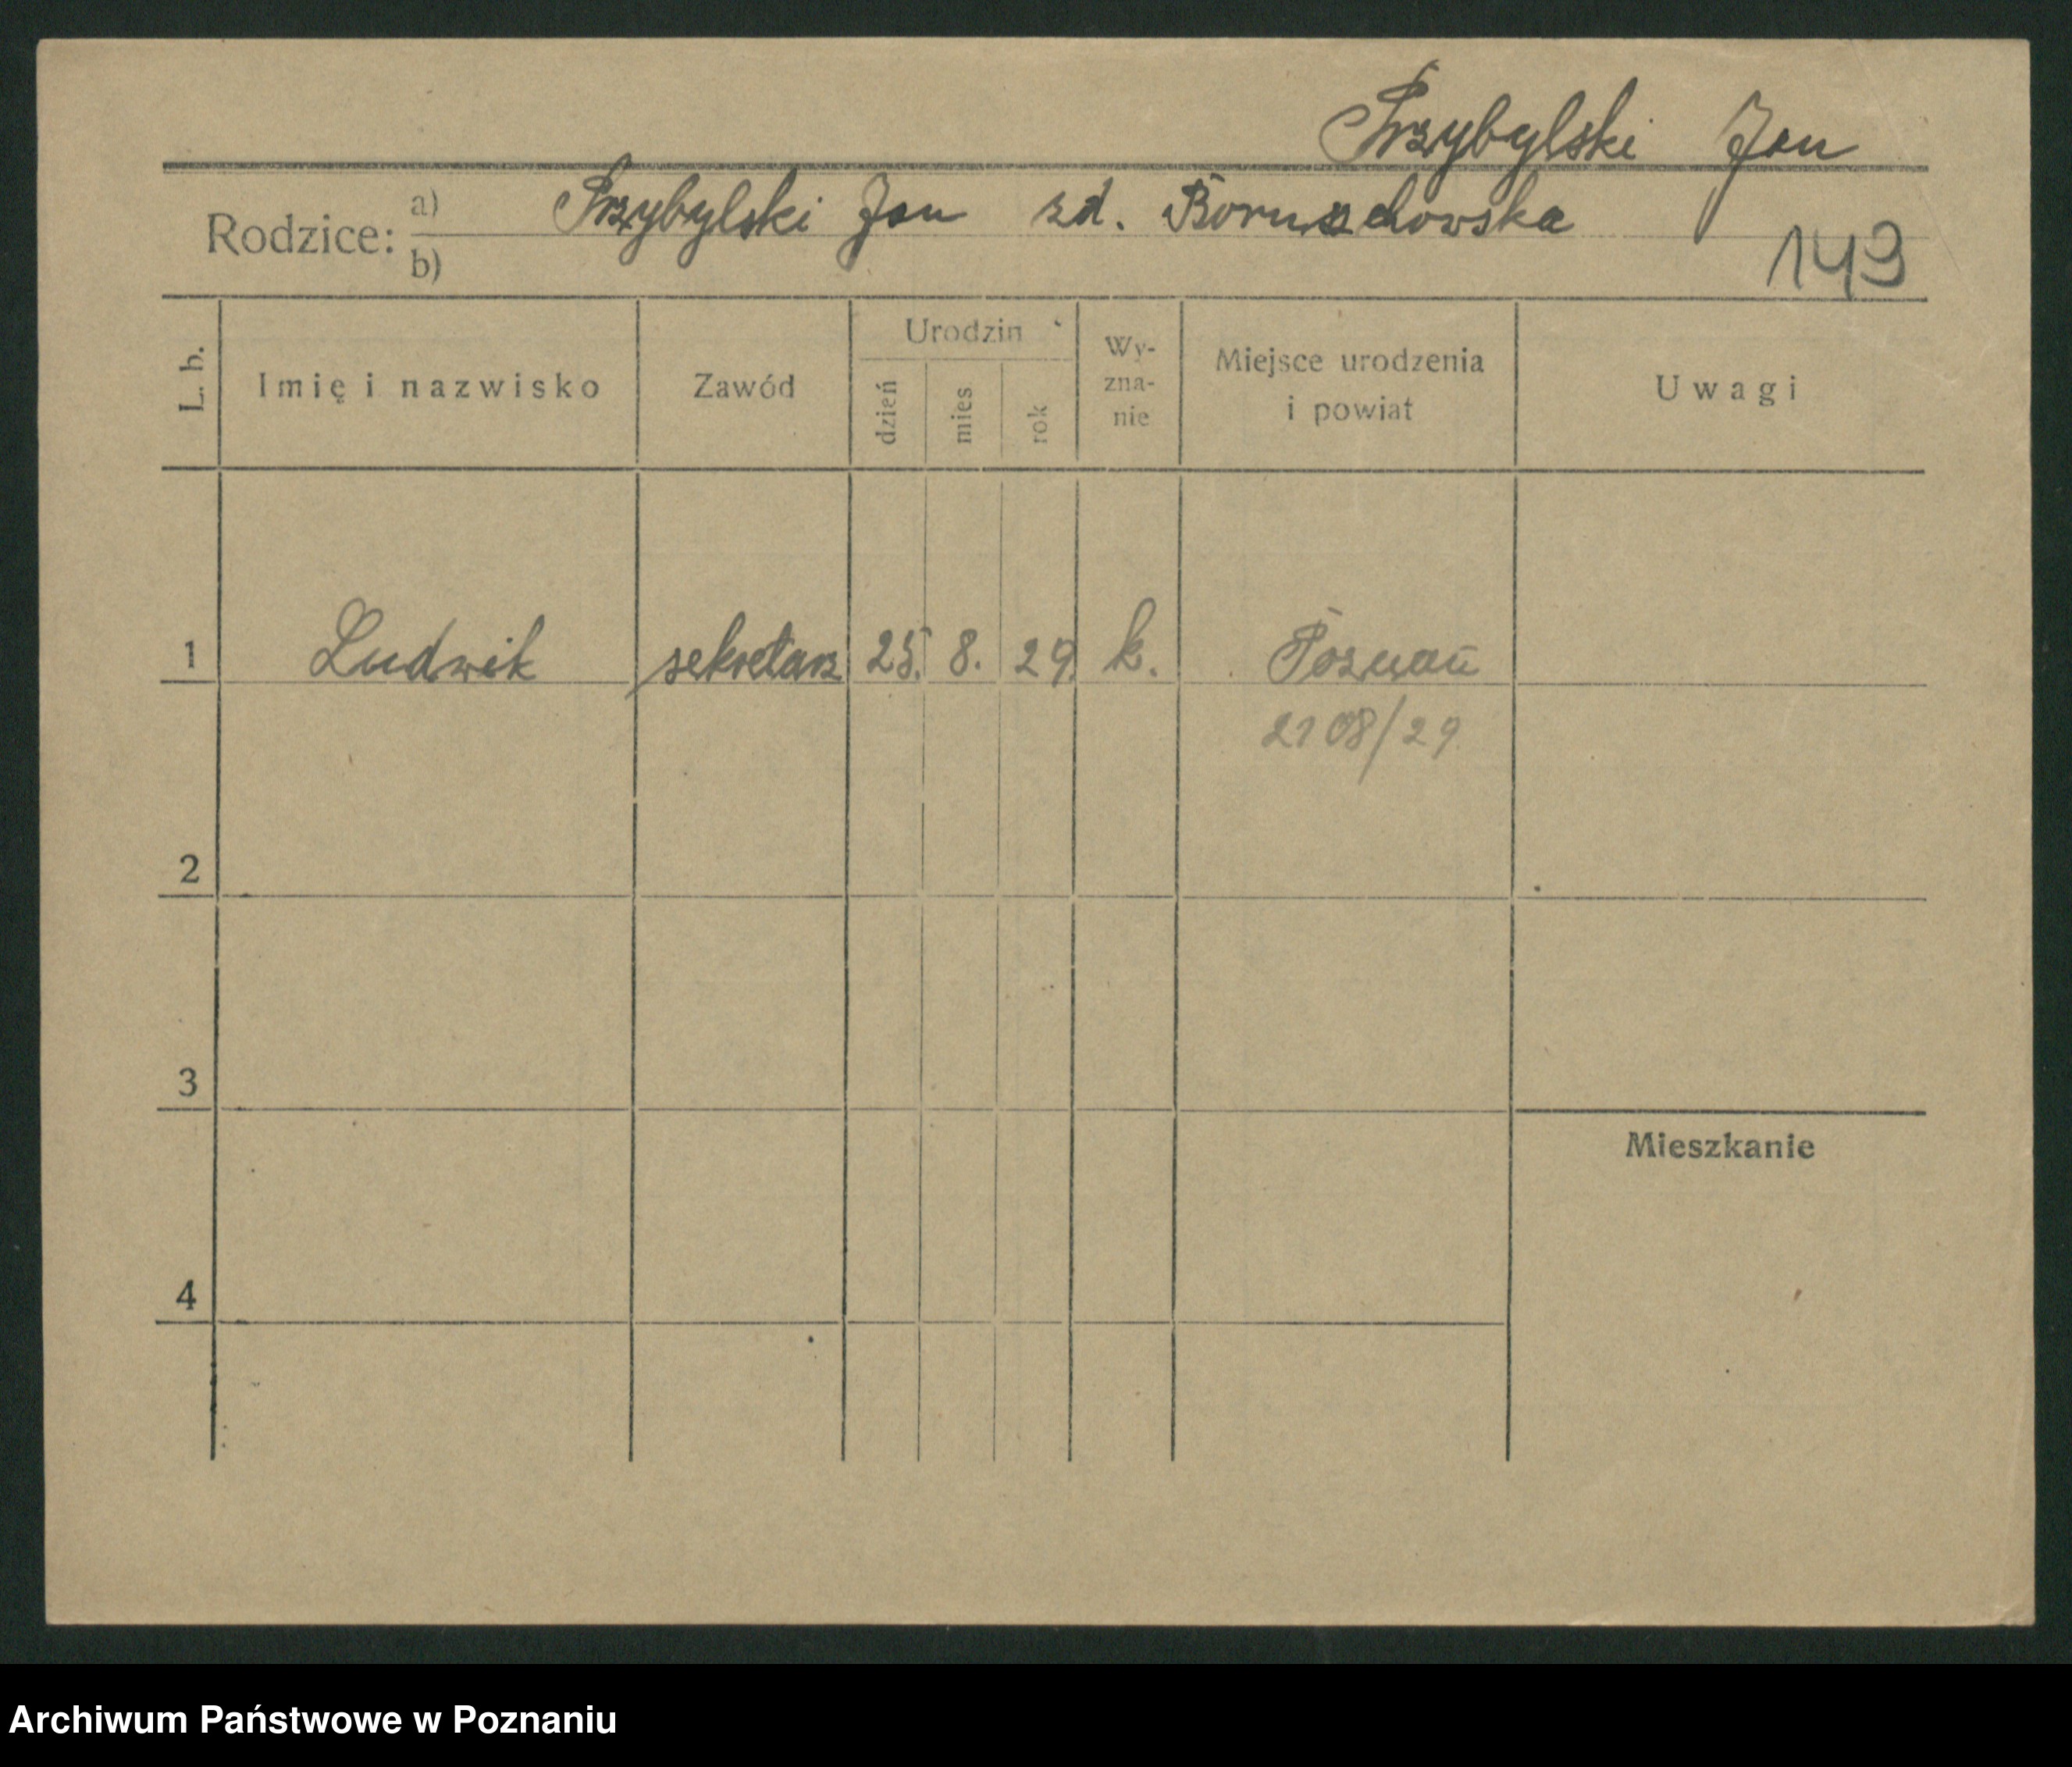 Przybylski Jan
Rodzice: a) Przybylski Jan zd. Boruszchowska
b)
143
L. b.
Imię i nazwisko
Zawód
Urodzin
dzień
mies
rok
Wy-
zna-
nie
Miejsce urodzenia
i powiat
Uwagi
1 Ludwik sekretarz 25. 8. 29. k. Poznań
2108/29
2
3
Mieszkanie
4
Archiwum Państwowe w Poznaniu